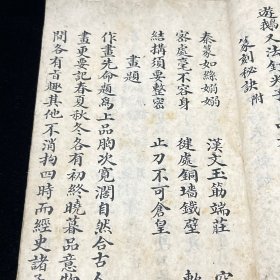 遊鵝又法
篆刻秘訣附
漢文玉筯端莊
健處銅墻鐵壁
止刀不可倉皇
秦篆如絲嫋嫋
密處毫不容身
結搆須要整密
畫題
作畫先命題爲上品胸次寬濶自然合古人
畫更要記春夏秋冬各有初終曉暮品意物
間各有首趣其他不消拘四時而經史諸子